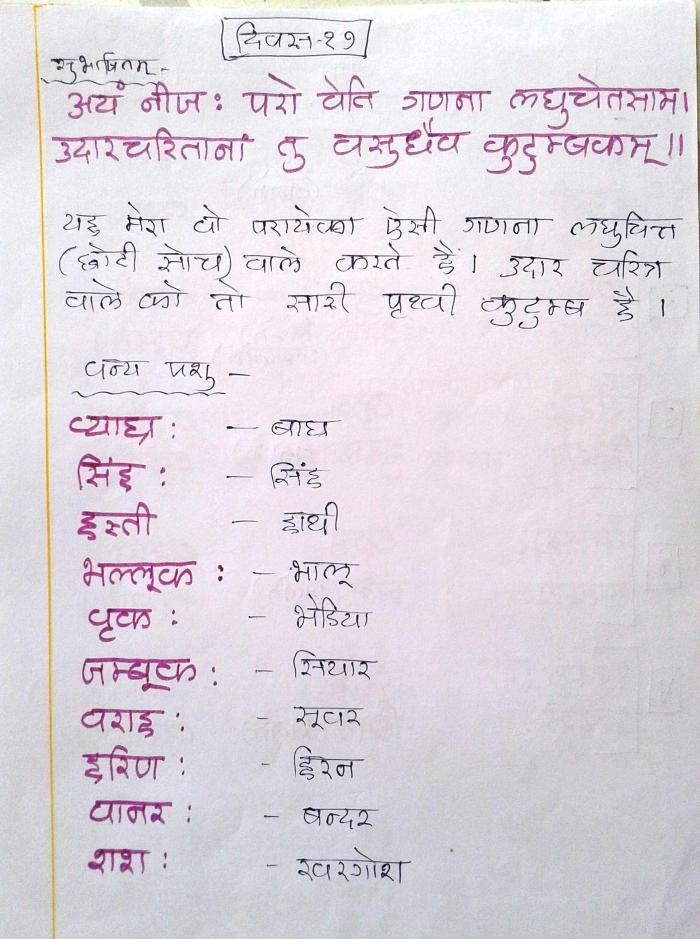 दिवस-१७
सुभाषितम् -
अयं नीजः परो वेति गणना लघुचेतसाम।
उदारचरितानां तु वसुधैव कुटुम्बकम् ॥
यह मेरा वो परायेका ऐसी गणना लघुचित्त
(छोटी सोच) वाले करते हैं। उदार चरित्र
वाले को तो सारी पृथ्वी कुटुम्ब है ।
वन्य पशु -
व्याघ्रः - बाघ
सिंहः - सिंह
हस्ती - हाथी
भल्लूकः - भालू
वृकः - भेडिया
जम्बूकः - सियार
वराहः - सूवर
हरिणः - हिरन
वानरः - बन्दर
शशः - खरगोश